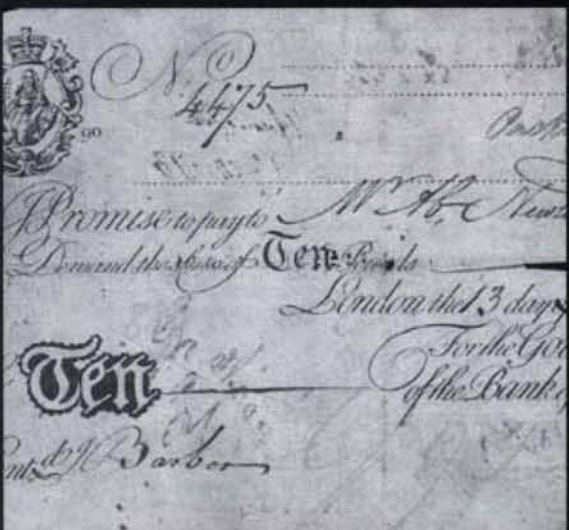 No
4475
I Promise to pay to Mr Ab.
Demand the Sum of Ten Pounds
London the 13 day
For the Go
of the Bank of
Ten
Ent. J Barber